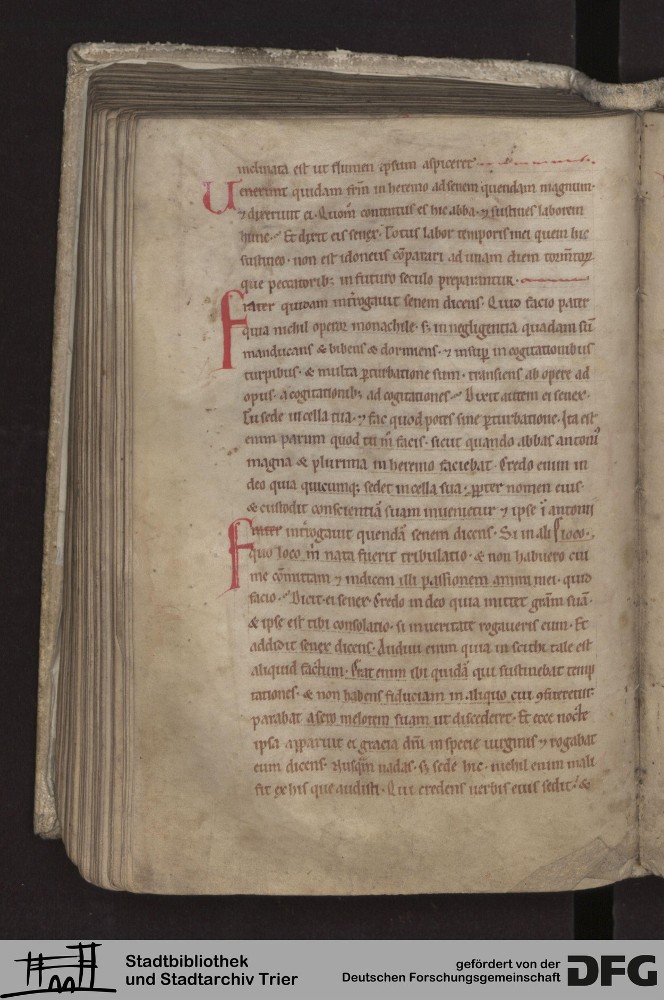 inclinata est ut flumen ipsum aspiceret
Venerunt quidam frm̄ in heremo ad senem quendam magnum·
⁊ dixerunt ei· Quom̄ contentus es hic abba· ⁊ sustines laborem
hunc· Et dixit eis senex· Totus labor temporis mei quem hic
sustineo· non est idoneus cōparari ad unam diem tormtoꝝ
que peccatorib; in futuro seculo preparantur·
Frater quidam int̄rogauit senem dicens· Quid facio pater
quia nichil operor monachile· s; in negligentia quadam sū
manducans & bibens & dormiens· ⁊ insup̄ in cogitationibus
turpibus· & multa ꝑturbatione sum· transiens ab opere ad
opus· a cogitationib; ad cogitationes· Dixit autem ei senex·
Tu sede in cella tua· ⁊ fac quod potes sine ꝑturbatione· Ita est
enim parum quod tu m̄ facis· sicut quando abbas antoni᾽
magna & plurima in heremo faciebat· Credo enim in
deo quia quicumq; sedet in cella sua· ꝓpter nomen eius·
& custodit conscientiā suam inuenietur ⁊ ipse ī antonii
Frater int̄rogauit quendā senem dicens· Si in ali loco·
quo loco m̄ nata fuerit tribulatio· & non habuero cui
me cōmittam ⁊ indicem illi passionem animi mei· quid
facio· Dicit ei senex· Credo in deo quia mittet grām suā·
& ipse est tibi consolatio· si in ueritate rogaueris eum· Et
addidit senex dicens· Audiui enim quia in scithi tale est
aliquid factum· Erat enim ibi quidā qui sustinebat temp
tationes· & non habens fiduciam in aliquo cui ꝯfiteretur·
parabat a sero melotem suam ut discederet· Et ecce nocte
ipsa apparuit ei gracia dn̄i in specie uirginis ⁊ rogabat
eum dicens· Nusqm̄ uadas· s; sede hic· nichil enim mali
fit ex his que audisti· Qui credens uerbis eius sedit· &
Stadtbibliothek
und Stadtarchiv Trier
gefördert von der
Deutschen Forschungsgemeinschaft
DFG